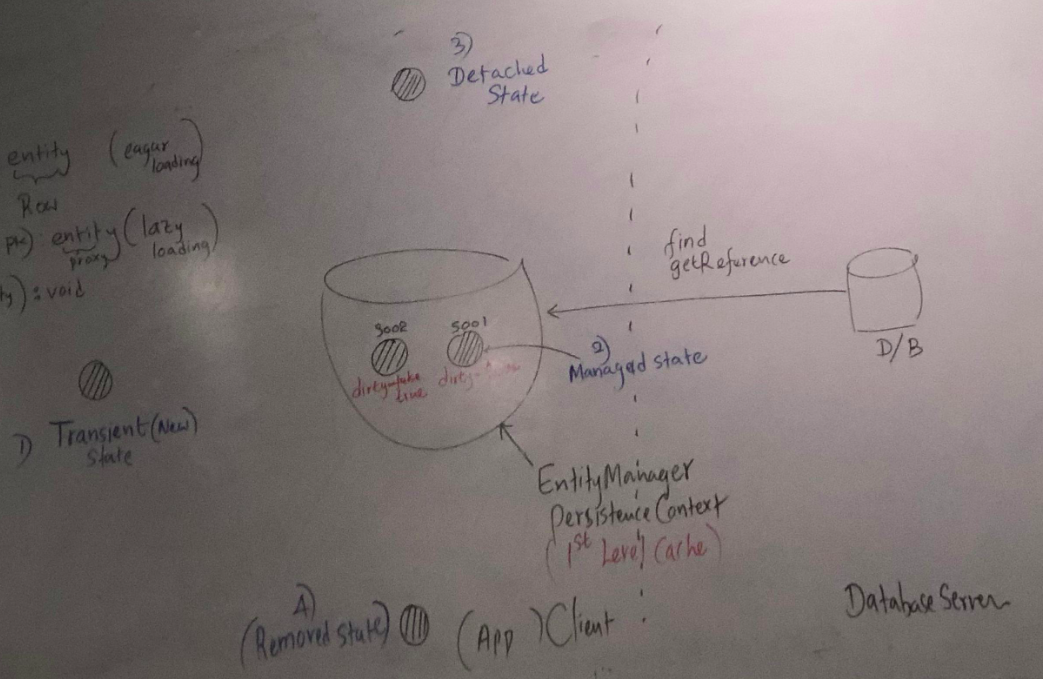 3)
Detached
State
entity (eagar
loading)
Row
pk): entity (lazy
proxy loading)
ty) : void
find
getReference
D/B
5001
dirty
2)
Managed state
1) Transient (New)
State
EntityManager
PersistenceContext
(1st Level Cache)
4)
(Removed State)
(App) Client
Database Server